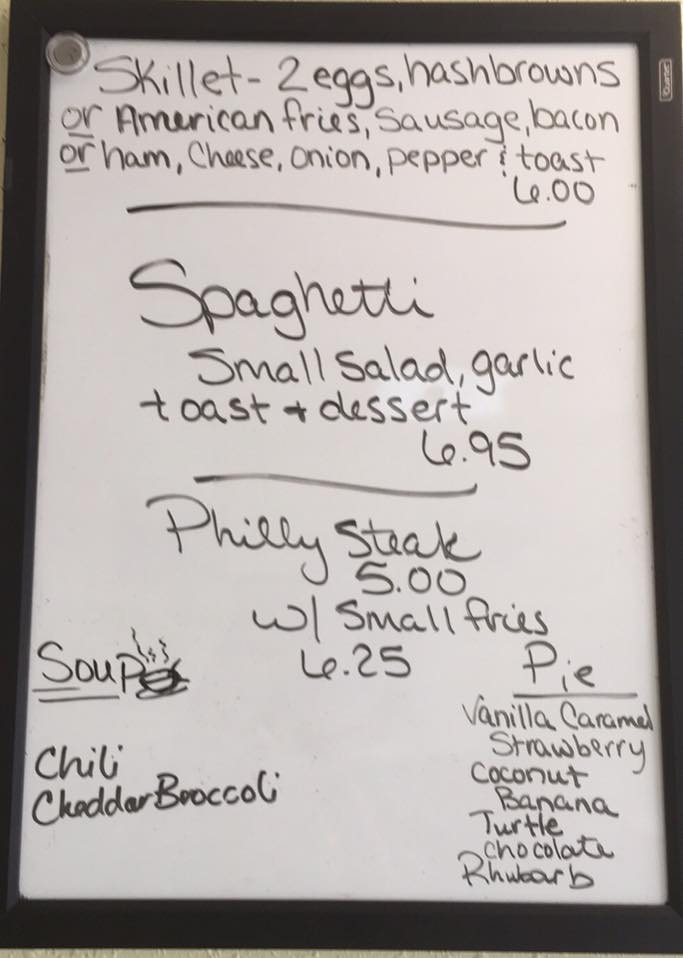 Skillet - 2 eggs, hashbrowns
or American fries, Sausage, bacon
or ham, Cheese, onion, pepper & toast
6.00
Spaghetti
Small Salad, garlic
toast + dessert
6.95
Philly Steak
5.00
w/ Small fries
6.25
Soup
Chili
Cheddar Broccoli
Pie
Vanilla Caramel
Strawberry
Coconut
Banana
Turtle
Chocolate
Rhubarb
Quartet